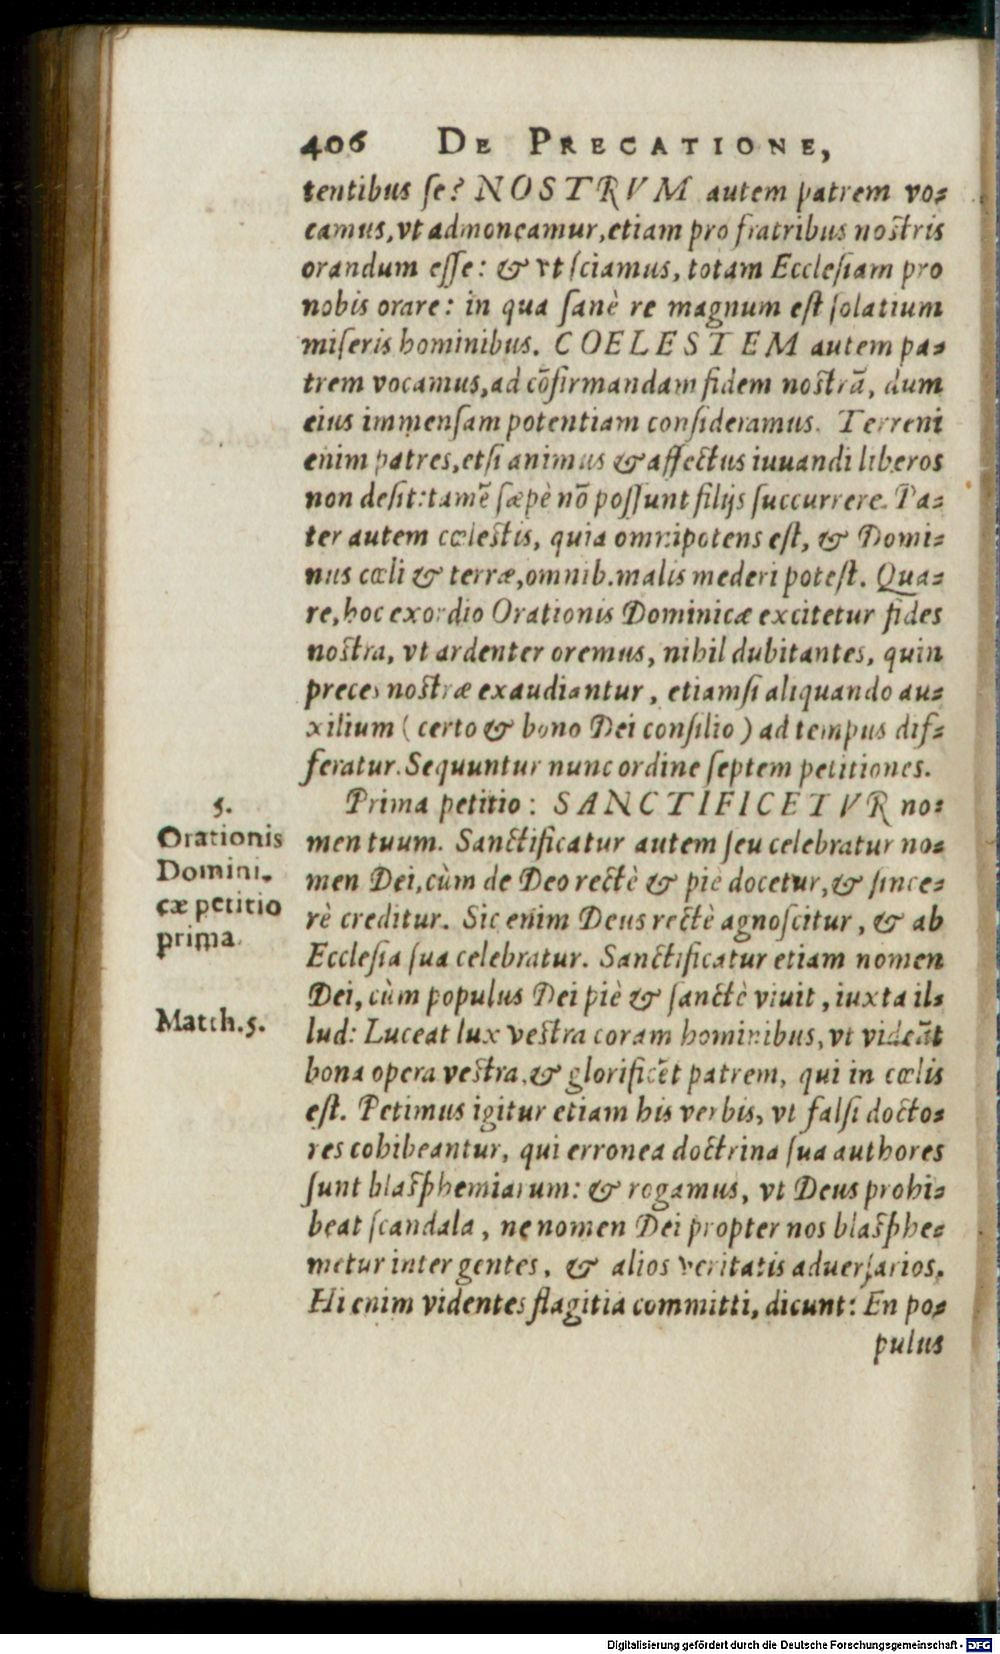 406 DE PRECATIONE,
tentibus ſe? NOSTRVM autem patrem vo-
camus, vt admoneamur, etiam pro fratribus noſtris
orandum eſſe: & vt ſciamus, totam Eccleſiam pro
nobis orare: in qua ſanè re magnum eſt ſolatium
miſeris hominibus. COELESTEM autem pa-
trem vocamus, ad cõfirmandam fidem noſtrã, dum
eius immenſam potentiam conſideramus. Terreni
enim patres, etſi animus & affectus iuuandi liberos
non deſit: tamẽ ſæpè nõ poſſunt filijs ſuccurrere. Pa-
ter autem cœleſtis, quia omnipotens eſt, & Domi-
nus cœli & terræ, omnib. malis mederi poteſt. Qua-
re, hoc exordio Orationis Dominicæ excitetur fides
noſtra, vt ardenter oremus, nihil dubitantes, quin
preces noſtræ exaudiantur, etiamſi aliquando au-
xilium (certo & bono Dei conſilio) ad tempus dif-
feratur. Sequuntur nunc ordine ſeptem petitiones.
5.
Orationis
Domini-
cæ petitio
prima.
Prima petitio: SANCTIFICETVR no-
men tuum. Sanctificatur autem ſeu celebratur no-
men Dei, cùm de Deo rectè & piè docetur, & ſince-
rè creditur. Sic enim Deus rectè agnoſcitur, & ab
Eccleſia ſua celebratur. Sanctificatur etiam nomen
Dei, cùm populus Dei piè & ſanctè viuit, iuxta il-
Matth.5.
lud: Luceat lux veſtra coram hominibus, vt videãt
bona opera veſtra, & glorificẽt patrem, qui in cœlis
eſt. Petimus igitur etiam his verbis, vt falſi docto-
res cohibeantur, qui erronea doctrina ſua authores
ſunt blaſphemiarum: & rogamus, vt Deus prohi-
beat ſcandala, ne nomen Dei propter nos blaſphe-
metur inter gentes, & alios veritatis aduerſarios.
Hi enim videntes flagitia committi, dicunt: En po-
pulus
Digitalisierung gefördert durch die Deutsche Forschungsgemeinschaft - DFG